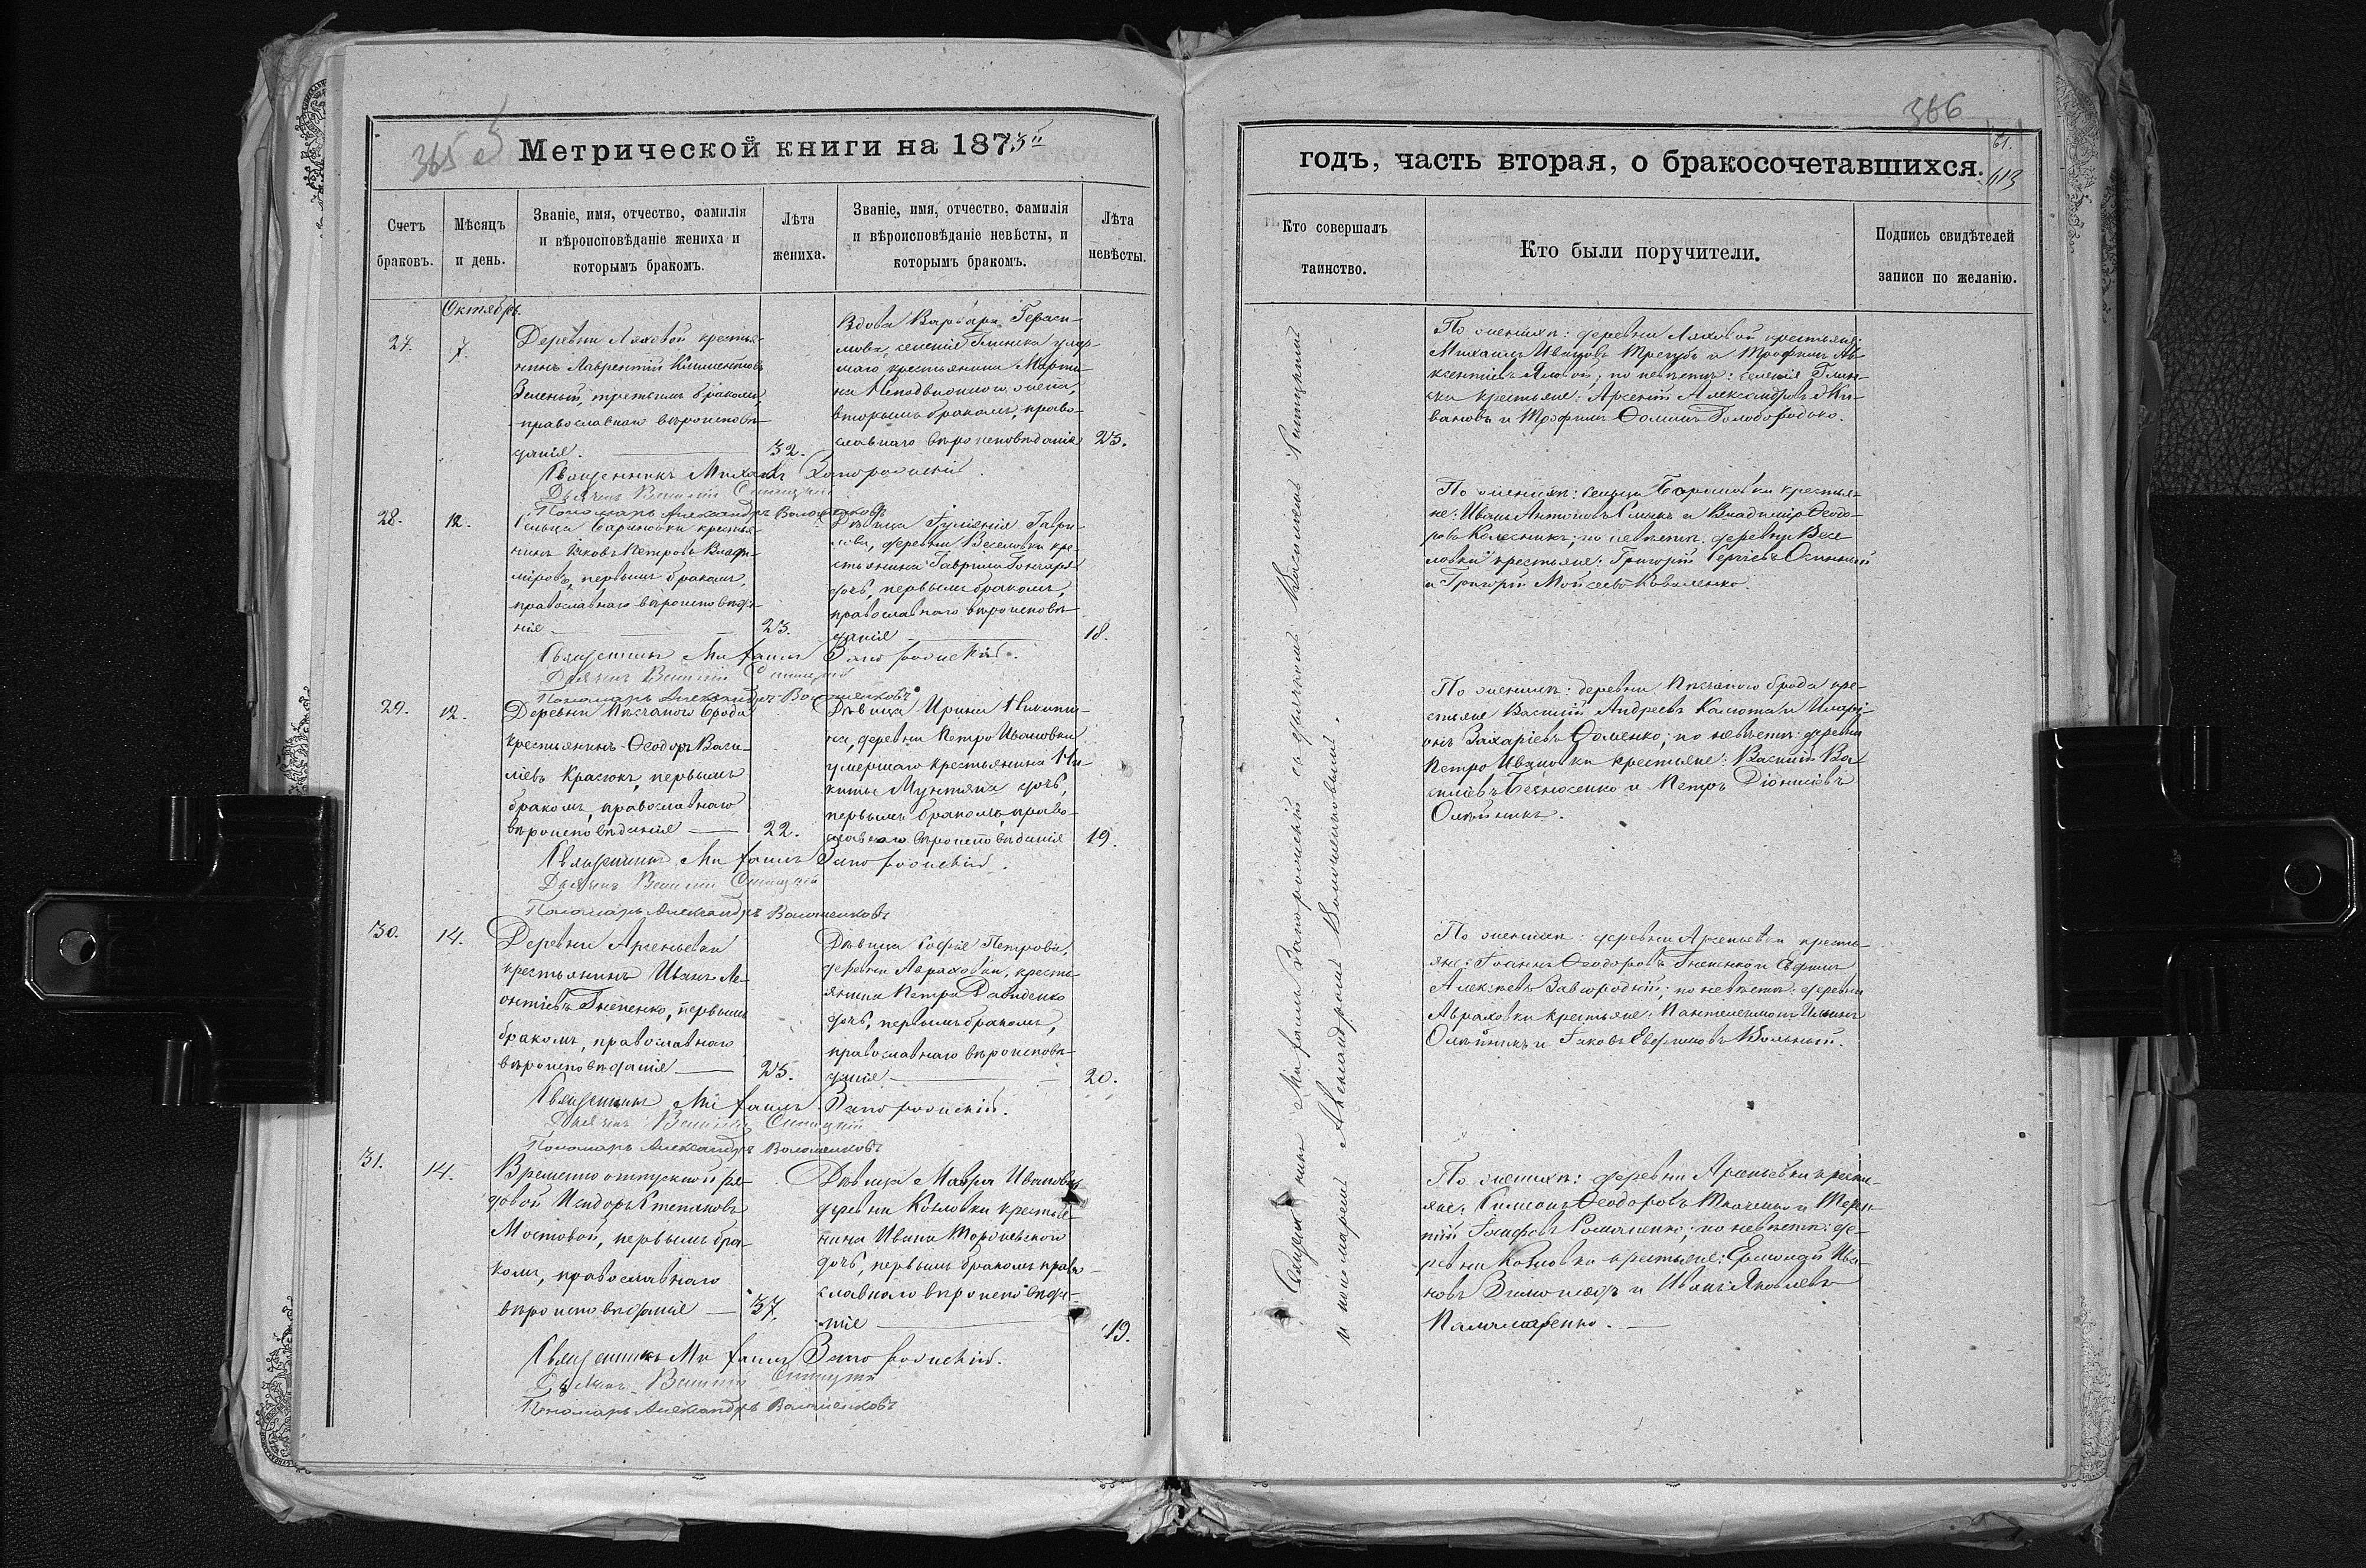 365
Метрической книги на 1873й
Счетъ браковъ.
Мѣсяцъ и день.
Званіе, имя, отчество, фамилія
и вѣроисповѣданіе жениха и
которымъ бракомъ.
Лѣта жениха.
Званіе, имя, отчество, фамилія
и вѣроисповѣданіе невѣсты, и
которымъ бракомъ.
Лѣта невѣсты.
Октябрь
27.
7.
Деревни Ляховой крестья-
нинъ Лаврентій Климентовъ
Зеленый, третьимъ бракомъ,
православнаго вѣроисповѣ-
данія.
32.
Вдова Варвара Гераси-
мова, селенія Глинска умер-
шаго крестьянина Марти-
на жена,
вторымъ бракомъ, право-
славнаго вѣроисповѣданія
23.
Священникъ Михаилъ Запорожскій.
Дьячекъ Василій Ситницкій
Пономарь Александръ Волошенковъ
28.
12.
Сельца Барановки крестья-
нинъ Іаковъ Петровъ Влади-
міровъ, первымъ бракомъ,
православнаго вѣроисповѣда-
нія
23.
Дѣвица Гаври-
лова, деревни Веселовки кре-
стьянина Гавріила Гончара
дочь, первымъ бракомъ,
православнаго вѣроисповѣ-
данія
18.
Священникъ Михаилъ Запорожскій.
Дьячекъ Василій Ситницкій
Пономарь Александръ Волошенковъ
29.
12.
Деревни Песчаного брода
крестьянинъ Ѳеодоръ Васи-
ліевъ Красюкъ, первымъ
бракомъ, православнаго
вѣроисповѣданія
22.
Дѣвица Ирина Никити-
на, деревни ПетроИвановки
умершаго крестьянина Ни-
киты Мунтяна дочь,
первымъ бракомъ, право-
славнаго вѣроисповѣданія
19.
Священникъ Михаилъ Запорожскій.
Дьячекъ Василій Ситницкій
Пономарь Александръ Волошенковъ
30.
14.
Деревни Арсеньевки
крестьянинъ Иванъ Ле-
онтіевъ Гнепенко, первымъ
бракомъ, православнаго
вѣроисповѣданія
25.
Дѣвица Софія Петрова,
деревни Авраховки, кресть-
янина Петра Давиденко
дочь, первымъ бракомъ,
православнаго вѣроисповѣ-
данія
20.
Священникъ Михаилъ Запорожскій.
Дьячекъ Василій Ситницкій
Пономарь Александръ Волошенковъ
31.
14.
Временно отпускной ря-
довой Исидоръ Степановъ
Мостовой, первымъ бра-
комъ, православнаго
вѣроисповѣданія
37.
Дѣвица Мавра Иванова,
деревни Козловки крестья-
нина Ивана
дочь, первымъ бракомъ право-
славнаго вѣроисповѣда-
нія
19.
Священникъ Михаилъ Запорожскій.
Дьячекъ Василій Ситницкій
Пономарь Александръ Волошенковъ
366
61.
годъ, часть вторая, о бракосочетавшихся.
Кто совершалъ таинство.
Кто были поручители.
Подпись свидѣтелей записи по желанію.
Священникъ Михаилъ Запорожскій съ дьячкомъ Василіемъ Ситницкимъ
и пономаремъ Александромъ Волошенковымъ.
По женихѣ: деревни Ляховой крестьяне:
Михаилъ Ивановъ Трегубъ и Трофимъ Ав-
ксентіевъ Яловой; по невѣстѣ: селенія Глин-
ска крестьяне: Арсеній Александровъ
и Трофимъ Ѳоминъ Голобородько.
По женихѣ: сельца Барановки крестья-
не: Иванъ Антоновъ и Владиміръ Ѳеодо-
ровъ Колесникъ; по невѣстѣ: деревни Весе-
ловки крестьяне: Григорій Сергіевъ
и Григорій Мойсеевъ Коваленко.
По женихѣ: деревни Песчаного брода кре-
стьяне Василій Андреевъ Калюта и Иларі-
онъ Захаріевъ Доменко; по невѣстѣ: деревни
ПетроИвановки крестьяне: Василій Ва-
силіевъ и Петръ Діонисіевъ
Олейникъ.
По женихѣ: деревни Арсеньевки кресть-
яне: Іоаннъ Ѳеодоровъ Гнепенко и Ефимъ
Алексѣевъ Завгородній; по невѣстѣ: деревни
Авраховки крестьяне: Пантелеимонъ Ильинъ
Олейникъ и Іаковъ Евфимовъ Вольный.
По женихѣ: деревни Арсеньевки кресть-
яне: Симеонъ Ѳеодоровъ Ткаченко и Терен-
тій Іосифовъ Романенко; по невѣстѣ: де-
ревни Козловки крестьяне: Ермолай Ива-
новъ и Иванъ Яковлевъ
Паламаренко.